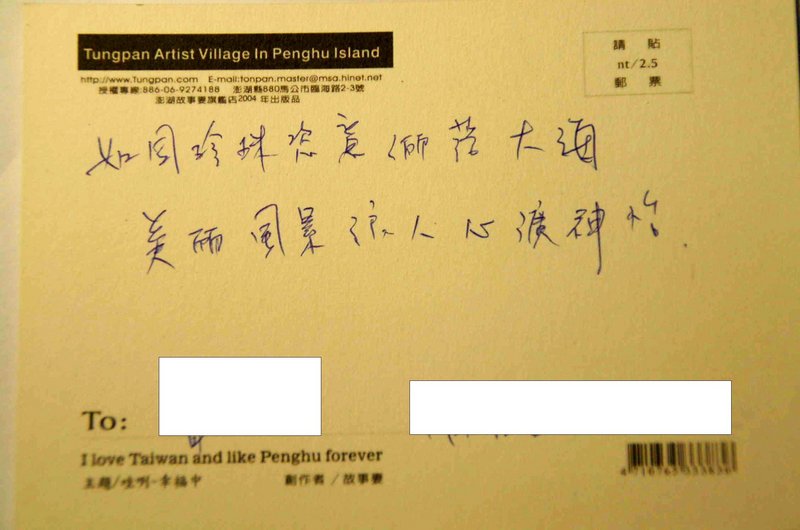 Tungpan Artist Village In Penghu Island
http://www.Tungpan.com E-mail:tonpan.master@msa.hinet.net
授權專線:886-06-9274188 澎湖縣880馬公市臨海路2-3號
澎湖故事妻旗艦店2004 年出版品
請貼
nt/2.5
郵票
如同珍珠恣意傾落大海
美丽風景 讓人心曠神怡.
To:
I love Taiwan and like Penghu forever
主題/哇咧-幸福中 創作者/故事妻